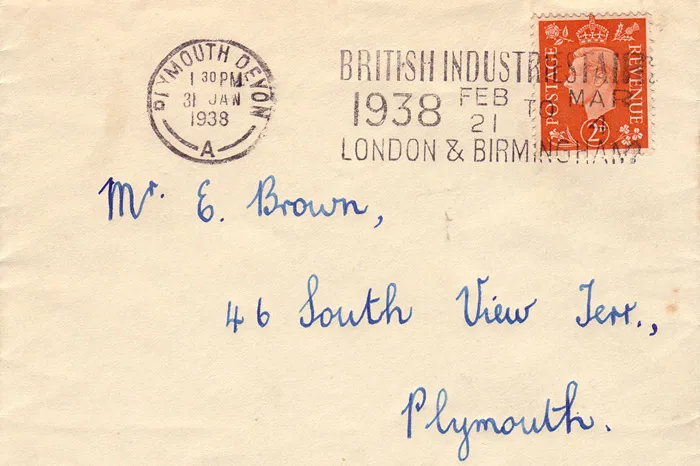 PLYMOUTH DEVON
1 30 PM
31 JAN
1938
A
BRITISH INDUSTRIES FAIR
1938 FEB 21 TO MAR 4
LONDON & BIRMINGHAM
POSTAGE REVENUE
2D
Mr. E. Brown,
46 South View Terr.,
Plymouth.